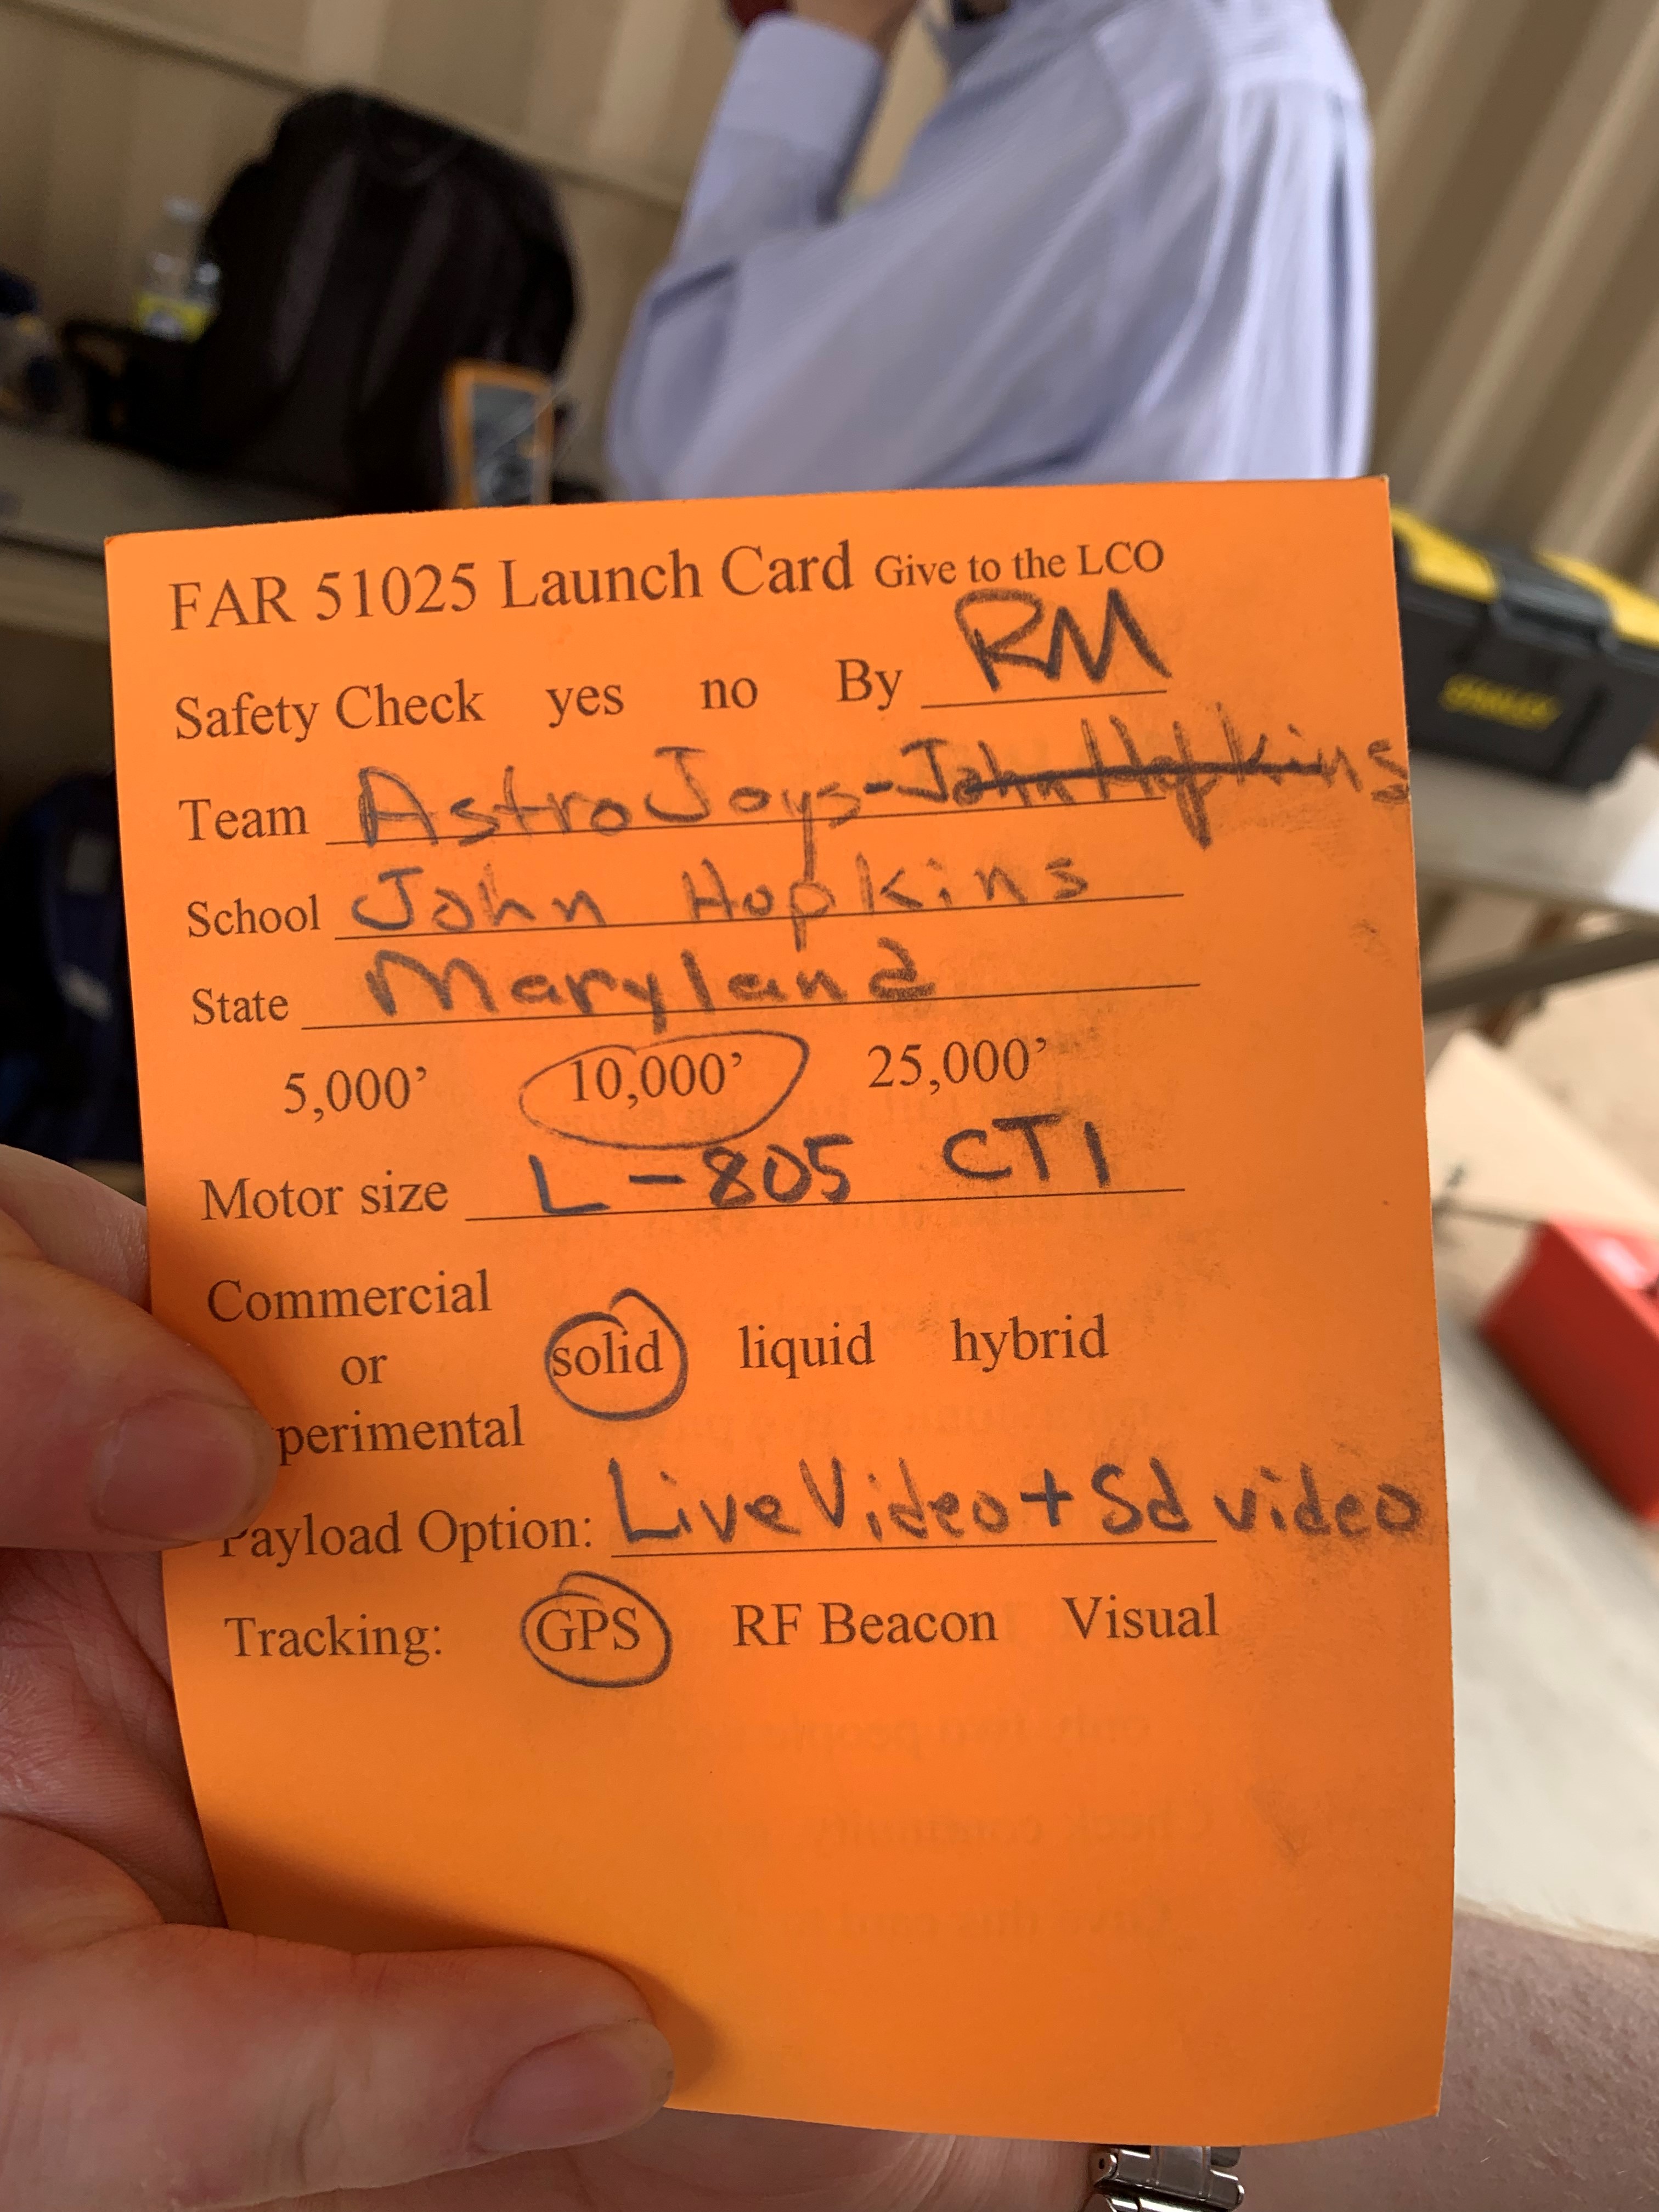 FAR 51025 Launch Card Give to the LCO
Safety Check yes no By RM
Team AstroJays-John Hopkins
School John Hopkins
State Maryland
5,000’ 10,000’ 25,000’
Motor size L-805 CTI
Commercial
or solid liquid hybrid
perimental
Payload Option: Live Video + Sd video
Tracking: GPS RF Beacon Visual
STANLEY